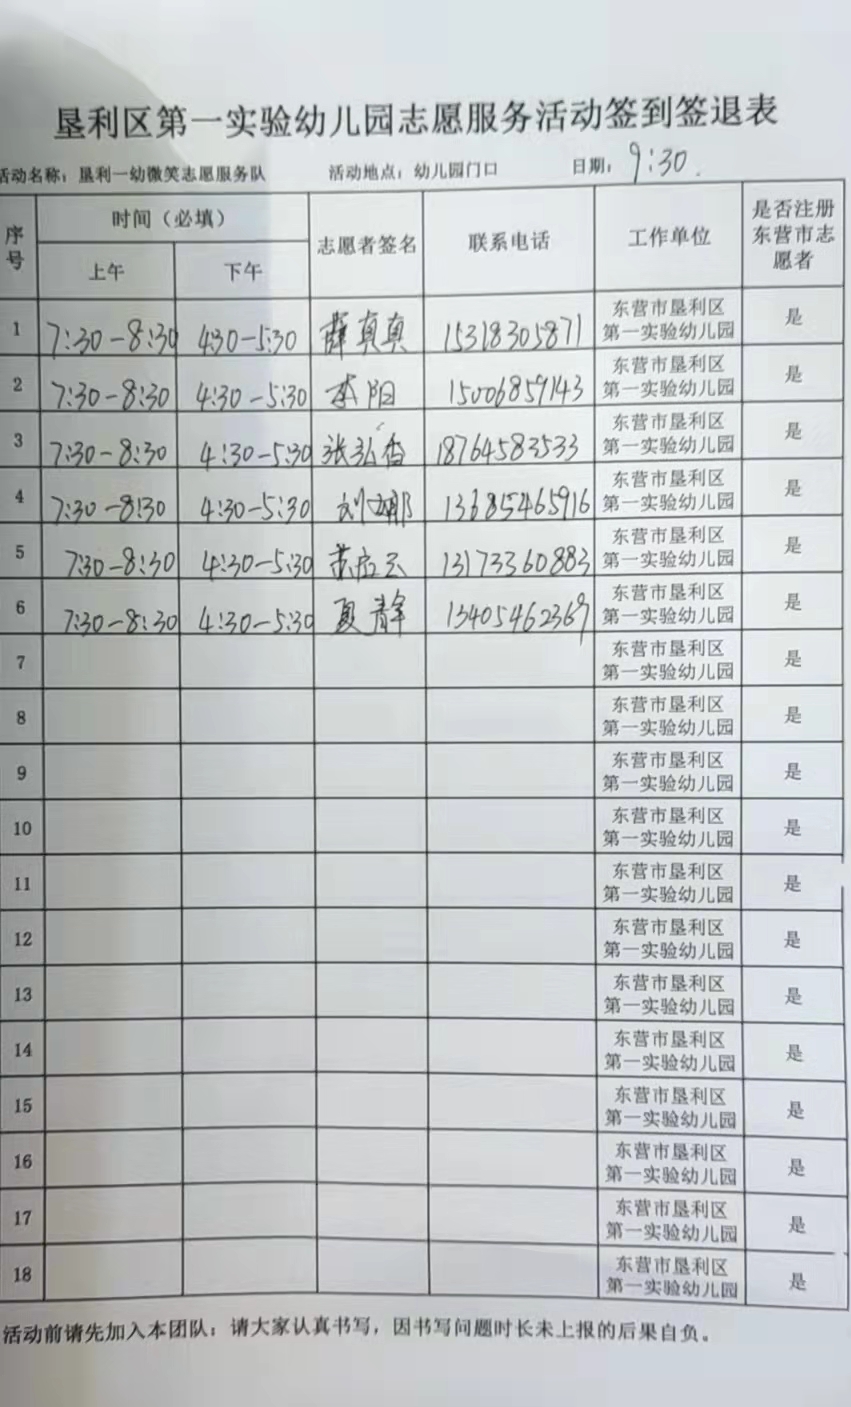 垦利区第一实验幼儿园志愿服务活动签到签退表
活动名称：垦利一幼微笑志愿服务队 活动地点：幼儿园门口 日期：9:30.
序号 时间（必填） 上午 下午 志愿者签名 联系电话 工作单位 是否注册东营市志愿者
1 7:30-8:30 4:30-5:30 薛真真 15318305871 东营市垦利区第一实验幼儿园 是
2 7:30-8:30 4:30-5:30 李阳 15006859143 东营市垦利区第一实验幼儿园 是
3 7:30-8:30 4:30-5:30 张弘香 18764583533 东营市垦利区第一实验幼儿园 是
4 7:30-8:30 4:30-5:30 刘娜 13685465916 东营市垦利区第一实验幼儿园 是
5 7:30-8:30 4:30-5:30 13173360883 东营市垦利区第一实验幼儿园 是
6 7:30-8:30 4:30-5:30 夏青 13405462369 东营市垦利区第一实验幼儿园 是
7 东营市垦利区第一实验幼儿园 是
8 东营市垦利区第一实验幼儿园 是
9 东营市垦利区第一实验幼儿园 是
10 东营市垦利区第一实验幼儿园 是
11 东营市垦利区第一实验幼儿园 是
12 东营市垦利区第一实验幼儿园 是
13 东营市垦利区第一实验幼儿园 是
14 东营市垦利区第一实验幼儿园 是
15 东营市垦利区第一实验幼儿园 是
16 东营市垦利区第一实验幼儿园 是
17 东营市垦利区第一实验幼儿园 是
18 东营市垦利区第一实验幼儿园 是
活动前请先加入本团队：请大家认真书写，因书写问题时长未上报的后果自负。